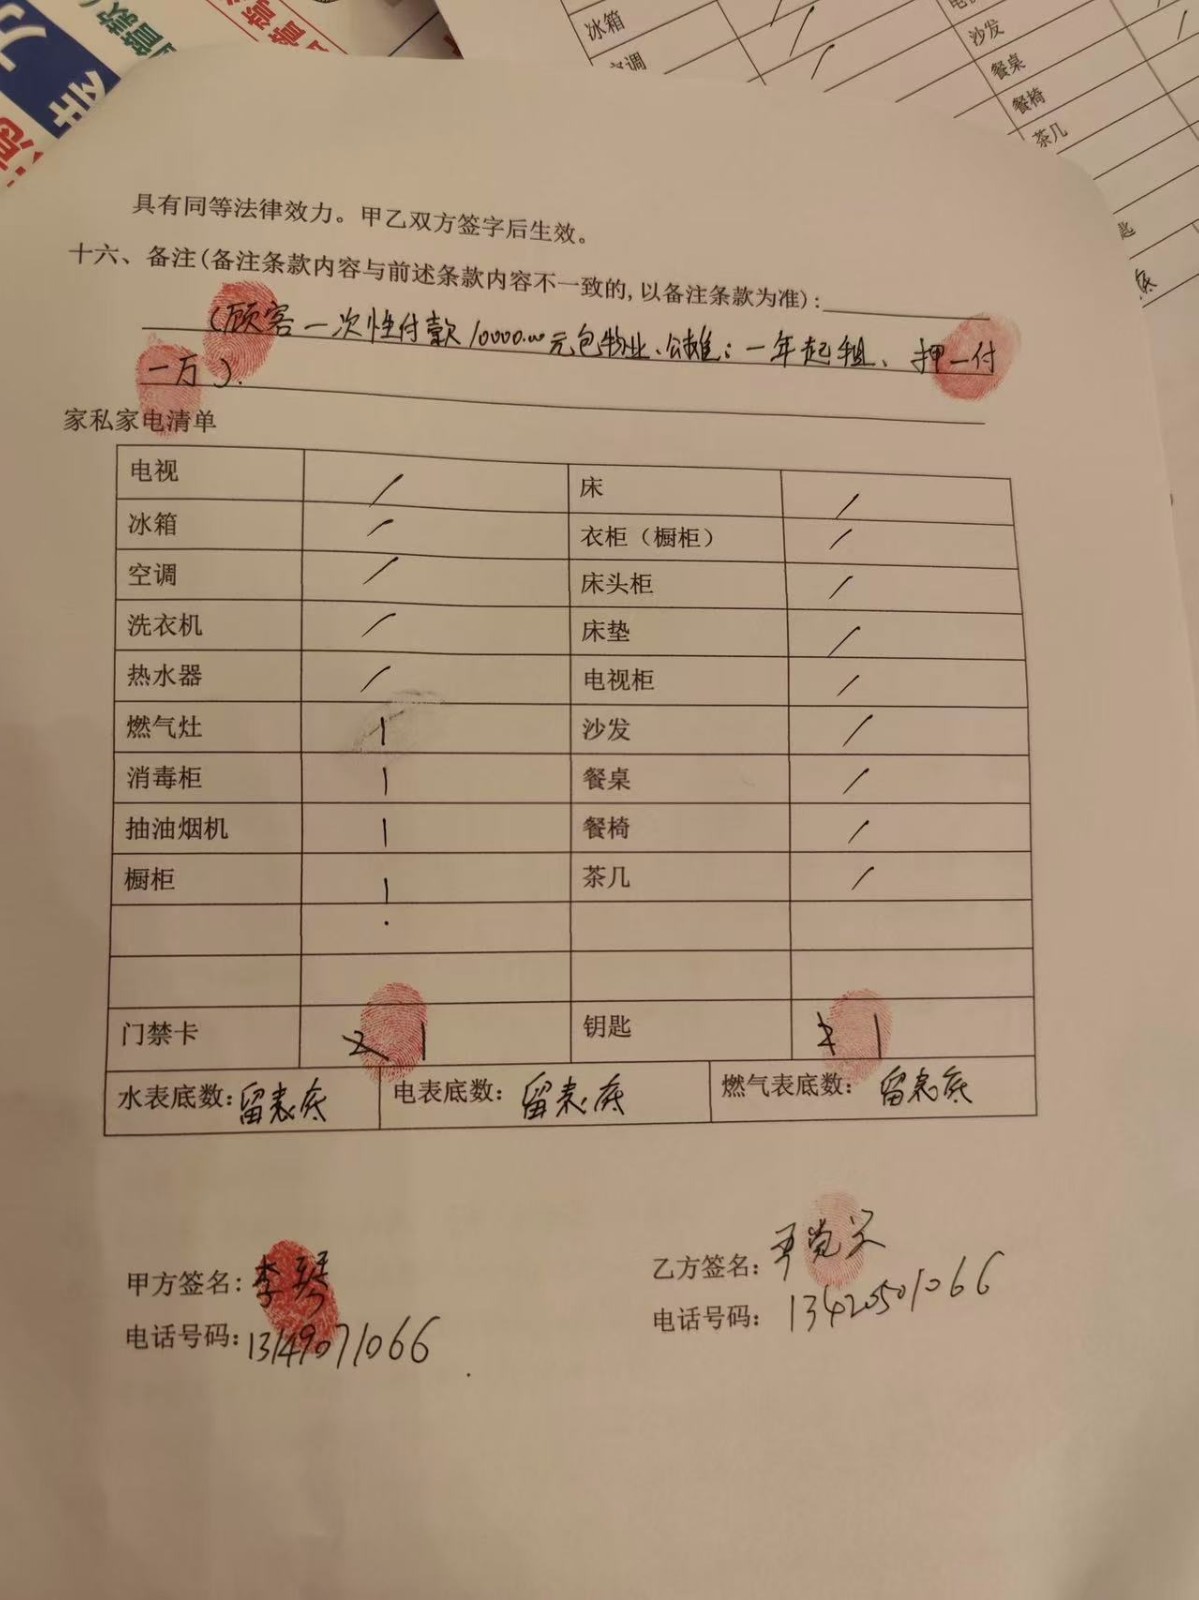 冰箱
空调
沙发
餐桌
餐椅
茶几
具有同等法律效力。甲乙双方签字后生效。
十六、备注(备注条款内容与前述条款内容不一致的,以备注条款为准):
(顾客一次性付款10000.00元包物业、公摊;一年起租、押一付
一万).
家私家电清单
电视 / 床 /
冰箱 / 衣柜（橱柜） /
空调 / 床头柜 /
洗衣机 / 床垫 /
热水器 / 电视柜 /
燃气灶 1 沙发 /
消毒柜 1 餐桌 /
抽油烟机 1 餐椅 /
橱柜 1 茶几 /
门禁卡 1 钥匙 1
水表底数:留表底 电表底数:留表底 燃气表底数:留表底
甲方签名:李琴 乙方签名:
电话号码:13149071066 电话号码:13420501066